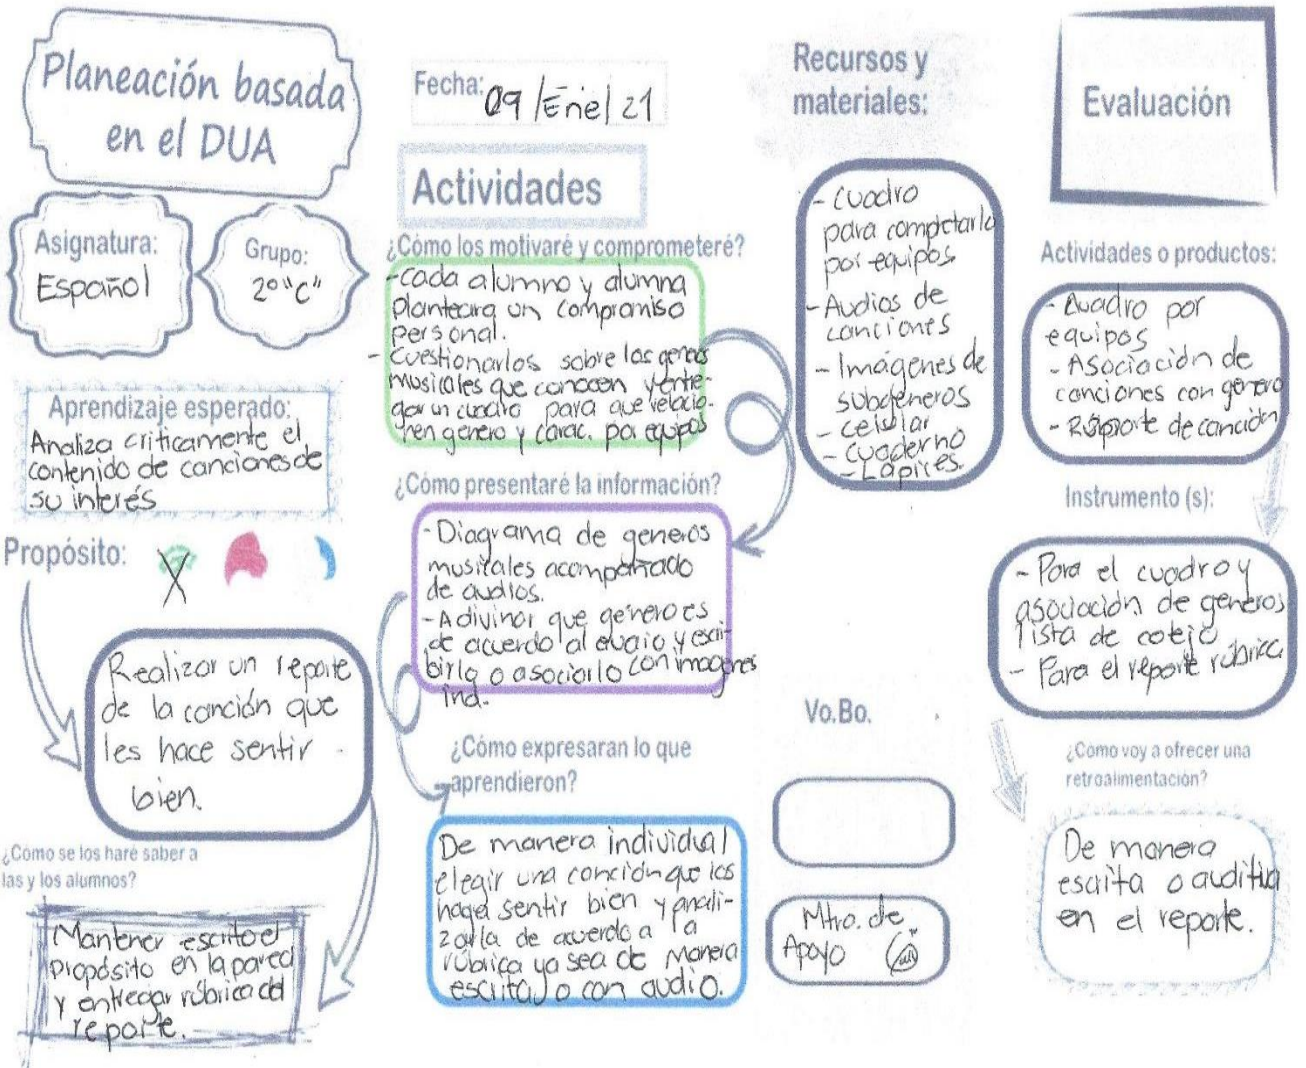 Planeación basada
en el DUA
Asignatura:
Español
Grupo:
2° "C"
Aprendizaje esperado:
Analiza criticamente el
contenido de canciones de
su interés
Propósito:
Realizar un reporte
de la canción que
les hace sentir
bien.
¿Cómo se los haré saber a
las y los alumnos?
Mantener escrito el
propósito en la pared
y entregar rúbrica del
reporte.
Fecha: 09/Ene/21
Actividades
¿Cómo los motivaré y comprometeré?
- Cada alumno y alumna
planteara un compromiso
personal.
- Cuestionarlos sobre los generos
musicales que conocen y entre-
gar un cuadro para que relacio-
nen genero y carac. por equipos
¿Cómo presentaré la información?
- Diagrama de generos
musicales acompañado
de audios.
- Adivinar que género es
de acuerdo al audio y escri-
birlo o asociarlo con imagenes
ind.
¿Cómo expresaran lo que
aprendieron?
De manera individual
elegir una canción que los
haga sentir bien y anali-
zarla de acuerdo a la
rúbrica ya sea de manera
escrita o con audio.
Recursos y
materiales:
- Cuadro
para completarlo
por equipos
- Audios de
canciones
- Imágenes de
subgéneros
- celular
- cuaderno
- Lápices.
Vo.Bo.
Mtro. de
Apoyo
Evaluación
Actividades o productos:
- Cuadro por
equipos
- Asociación de
canciones con género
- Reporte de canción
Instrumento (s):
- Para el cuadro y
asociación de generos
lista de cotejo
- Para el reporte rúbrica
¿Como voy a ofrecer una
retroalimentación?
De manera
escrita o auditiva
en el reporte.